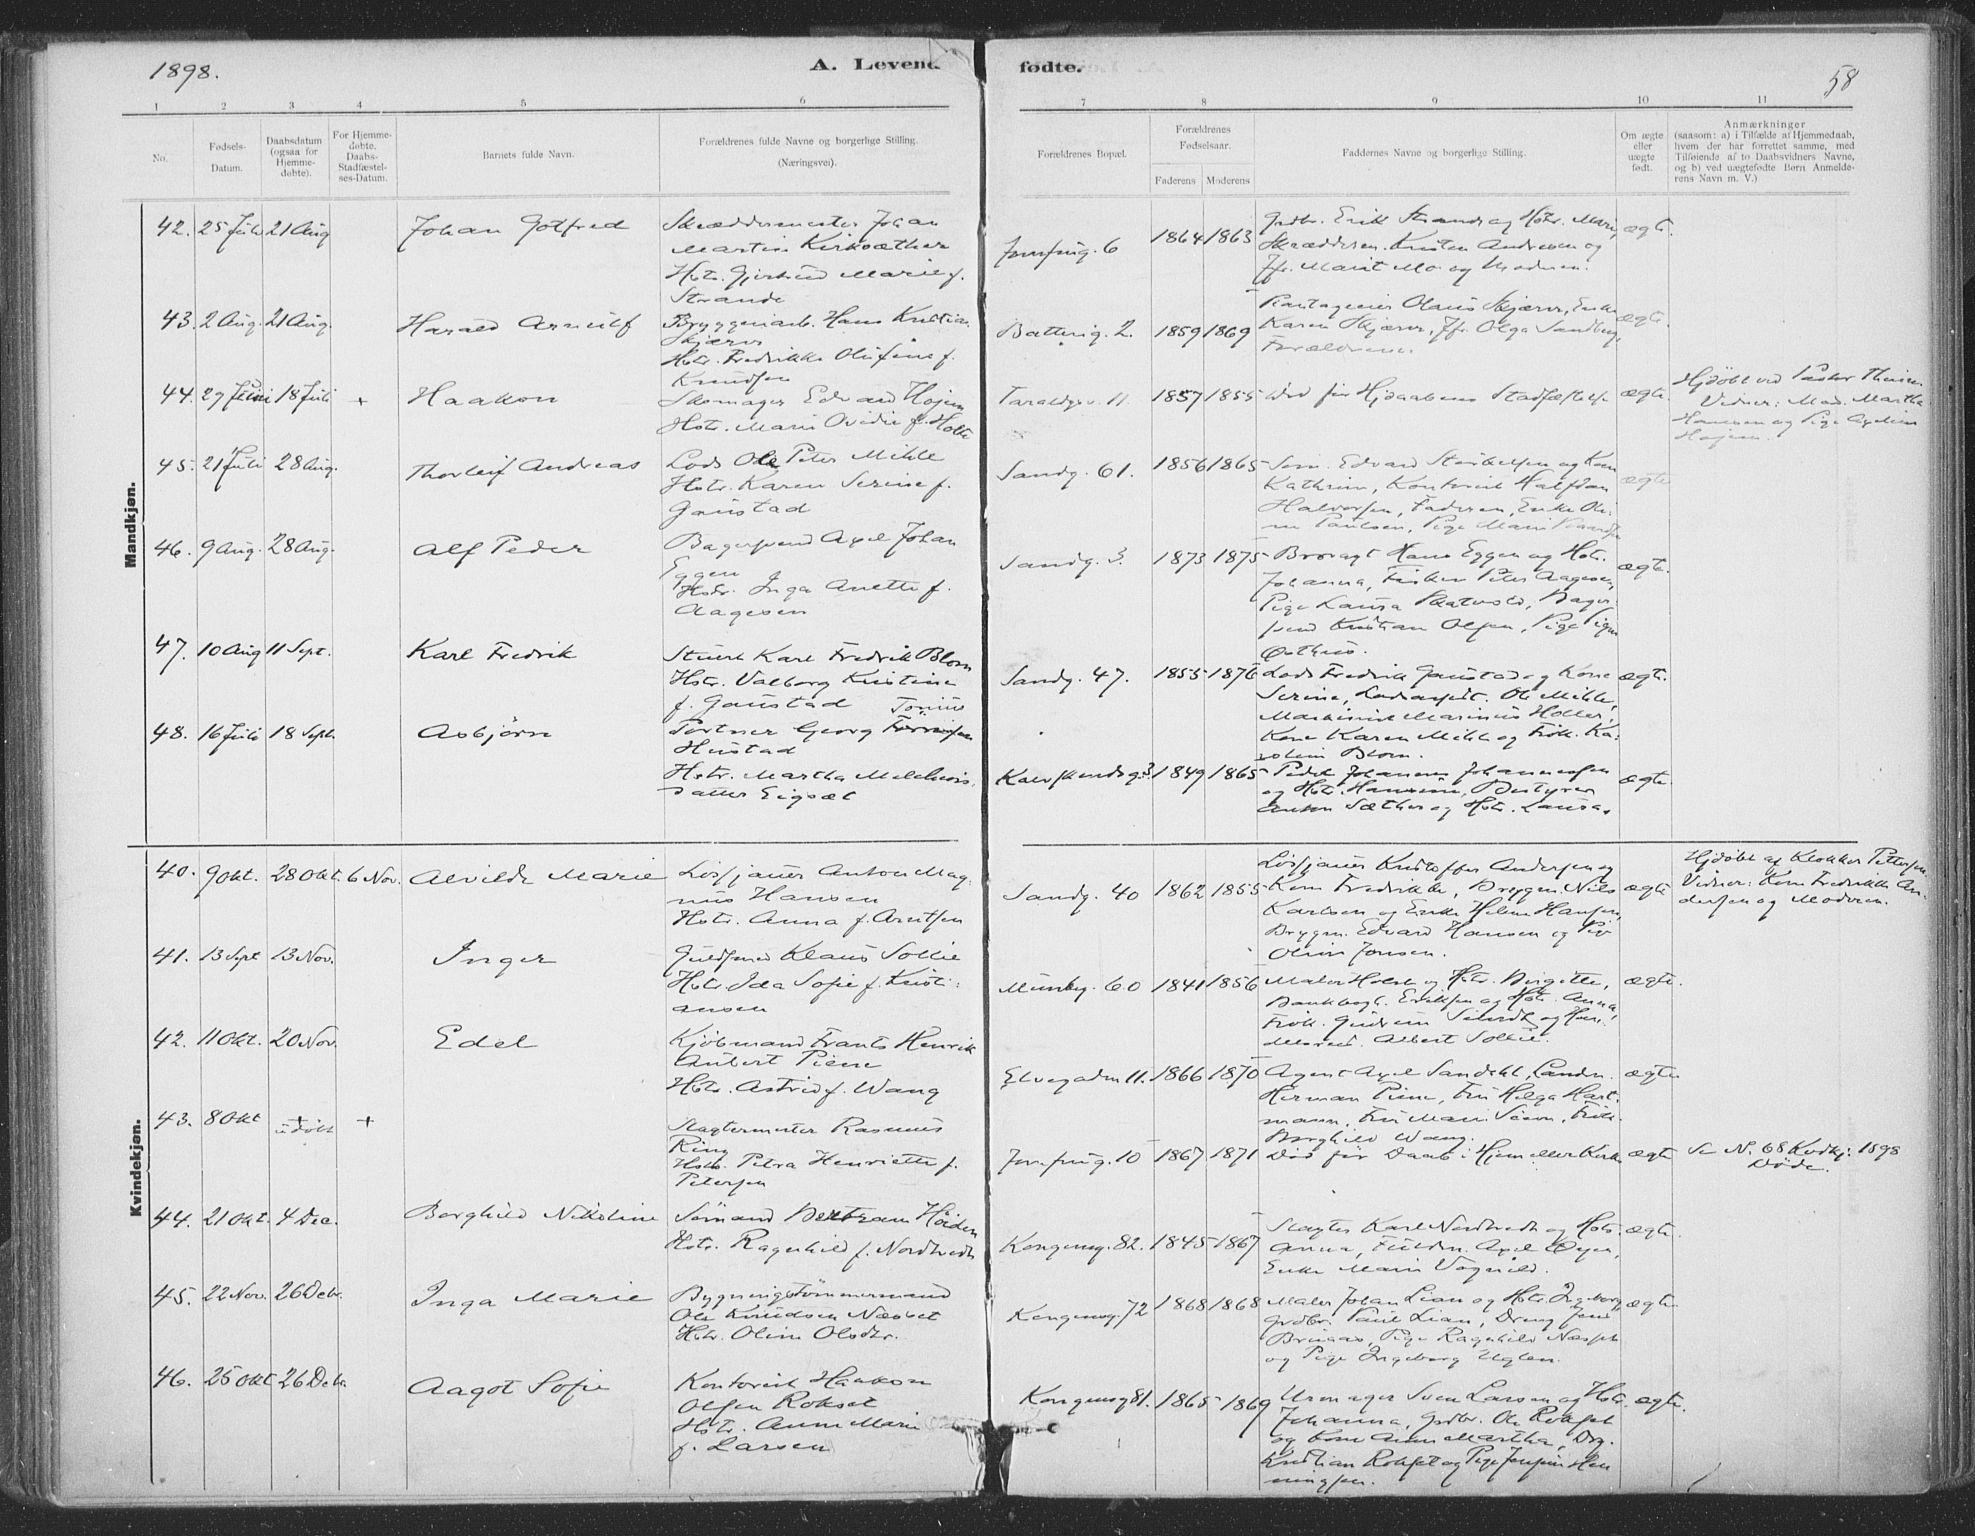 1898.
A. Levend
fødte.
58
1 2 3 4 5 6 7 8 9 10 11
No.
Fødsels-
Datum.
Daabsdatum
(ogsaa for
Hjemme-
døbte).
For Hjemme-
døbte.
Daabs-
Stadfæstel-
ses-Datum.
Barnets fulde Navn.
Forældrenes fulde Navne og borgerlige Stilling.
(Næringsvei).
Forældrenes Bopæl.
Forældrenes
Fødselsaar.
Faderens Moderens
Faddernes Navne og borgerlige Stilling.
Om ægte
eller
uægte
født.
Anmærkninger
(saasom: a) i Tilfælde af Hjemmedaab,
hvem der har forrettet samme, med
Tilføiende af to Daabsvidners Navne,
og b) ved uægtefødte Børn Anmelde-
rens Navn m. V.)
Mandkjøn.
42. 25 Juli 21 Aug Johan Gotfred
Skræddermester Johan
Martin Kirksæther
Hstr. Gjertrud Marie f.
Strande
Jomfrug. 6 1864 1863
Grdbr. Erik Strande og Hstr. Marit,
Skrædders. Kristen Andresen og
Jfr. Marit Mo og Moderen.
ægte.
43. 2 Aug. 21 Aug. Harald Arnulf
Bryggeriarb. Hans Kristian
Skjærvø
Hstr. Fredrikke Olufine f.
Knudsen
Batterig. 2. 1859 1869
Olaus Skjærvø, Enke
Karen Skjærvø, Jfr. Olga Sandberg,
Forældrene.
ægte.
44. 27 Juni 18 Juli + Haakon
Skomager Edvard Hojem
Hstr. Marie Ovidie f. Holte
Taraldsgv. 11. 1857 1855
Død før Hjdaabens Stadfæstelse
ægte.
Hjdøbt ved Pastor
Vidner: Mad. Martha
Hansen og Pige
Hojem.
45. 21 Juli 28 Aug. Thorleif Andreas
Lods Ole Peter Mikle
Hstr. Karen Serine f.
Gaustad
Sandg. 61. 1856 1865
Søm. Edvard og Kone
Kathrine, Kontorist Halfdan
Halvorsen, Faderen, Enke Oli-
ne Paulsen, Pige Marie
ægte
46. 9 Aug. 28 Aug. Alf Peder
Bagersvend Axel Johan
Eggen
Hstr. Inga Anette f.
Aagesen
Sandg. 3. 1873 1875
Brovagt Hans Eggen og Hstr.
Johanna, Fisker Peter Aagesen,
Pige Laura Bager-
svend Kristian Olsen, Pige
Østhus.
ægte.
47. 10 Aug 11 Sept. Karl Fredrik
Stuert Karl Fredrik Blom
Hstr. Valborg Kristine
f. Gaustad
Sandg. 47. 1855 1876
Lods Fredrik Gaustad og Kone
Serine, Lods Ole Mikle,
Maskinist Marinius Holler,
Kone Karen Mikle og Frøk. Ka-
roline Blom.
ægte.
48. 16 Juli 18 Sept. Asbjørn
Portner Georg Tønnes
Hustad
Hstr. Martha Melchiors-
datter Eigsæt
Kalvskindsg. 3 1849 1865
Johannes Johannessen
og Hstr. Hansine, Bestyrer
Anton Sæther og Hstr. Laura.
ægte.
Kvindekjøn.
40. 9 Okt. 28 Okt. 6 Nov. Alvilde Marie
Løsjauer Anton Mag-
nus Hansen
Hstr. Anna f. Arntsen
Sandg. 40 1862 1855
Løsjauer Kristoffer Andersen og
Kone Fredrikke, Bryggem. Nils
Karlsen og Enke Helene Hansen,
Bryggm. Edvard Hansen og Pig
Oline Jonsen.
ægte
Hjdøbt af Klokker Pettersen
Vidner: Kone Fredrikke An-
dersen og Moderen.
41. 13 Sept 13 Nov. Inger
Guldsmed Klaus Sollie
Hstr. Ida Sofie f. Kristi-
ansen
Munkg. 60 1841 1856
Maler Holst og Hstr. Birgitte,
Bankbogh. Eriksen og Hstr. Anna,
Frøk. Gudrun og Han-
delsreis. Albert Sollie.
ægte.
42. 11 Okt. 20 Nov. Edel
Kjøbmand Frants Henrik
Aubert Piene
Hstr. Astrid f. Wang
Elvegaden 11. 1866 1870
Agent Axel Sandahl, Landm.
Herman Piene, Fru Helga Hart-
mann, Fru Marie Frøk.
Borghild Wang.
ægte
43. 8 Okt + udøbt +
Slagtermester Rasmus
Ring
Hstr. Petra Henriette f.
Petersen
Jomfrug. 10 1867 1871
Død før Daab i Hjem eller Kirke
ægte
Se N. 68 Kvdkj. 1898
Døde.
44. 21 Okt. 4 Dec. Borghild Nikoline
Sømand Bertram Høiden
Hstr. Ragnhild f. Nordtvedt
Kongensg. 82. 1845 1867
Slagter Karl Nordtvedt og Hstr.
Anna, Axel Øyen,
Enke Marie Vognild.
ægte.
45. 22 Nov. 26 Debr. Inga Marie
Bygningstømmermand
Ole Knudsen Næsset
Hstr. Oline Olsdtr.
Kongensg. 72 1868 1868
Maler Johan Lian og Hstr. Ingeborg,
Grdbr. Paul Lian, Dreng Jens
Pige Ragnhild Næsset
og Pige Ingeborg Uglen.
ægte.
46. 25 Okt 26 Debr. Aagot Sofie
Kontorist Haakon
Olsen Rokset
Hstr. Anne Marie
f. Larsen
Kongensg 81. 1865 1869
Urmager Sven Larsen og Hstr.
Johanna, Grdbr. Ole Rokset
og Kone Anne Martha, Drg.
Kristian Rokset og Pige Jensine Hen-
ningsen.
ægte.